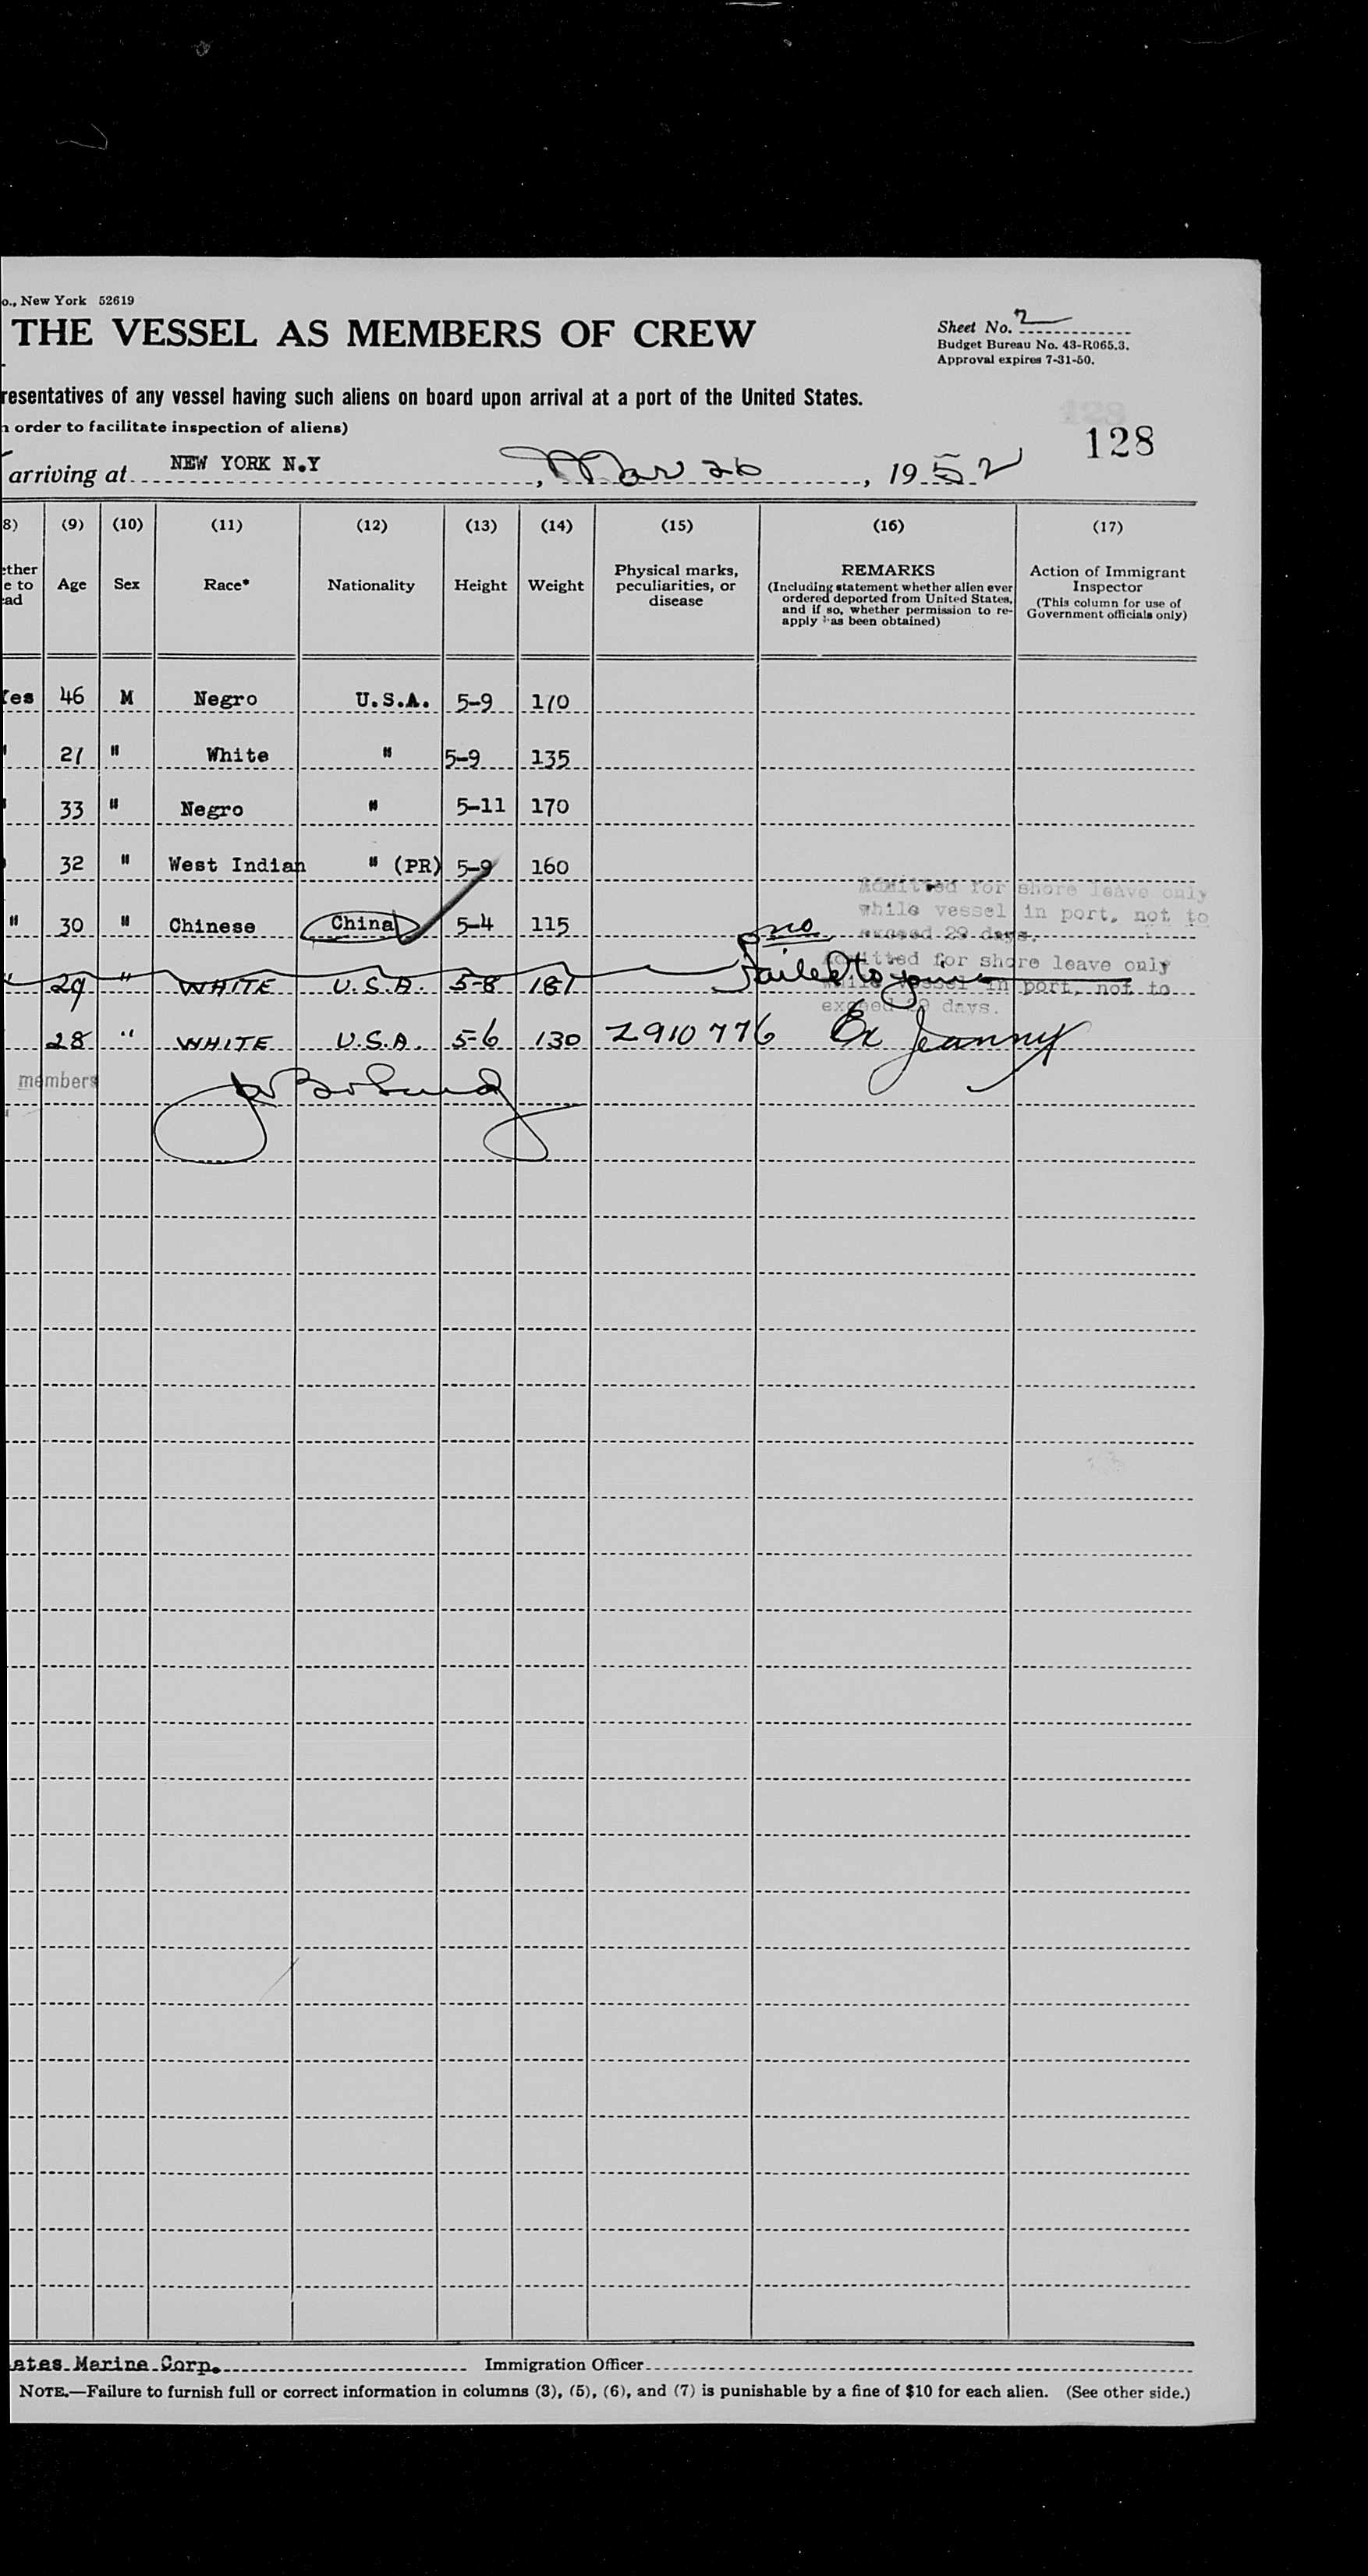 o., New York 52619
THE VESSEL AS MEMBERS OF CREW
Sheet No. 2
Budget Bureau No. 43-R065.3.
Approval expires 7-31-50.
resentatives of any vessel having such aliens on board upon arrival at a port of the United States.
n order to facilitate inspection of aliens)
128
128
arriving at NEW YORK N.Y, Mar 26, 1952
8) (9) (10) (11) (12) (13) (14) (15) (16) (17)
ether
e to
ead
Age
Sex
Race*
Nationality
Height
Weight
Physical marks,
peculiarities, or
disease
REMARKS
(Including statement whether alien ever
ordered deported from United States,
and if so, whether permission to re-
apply has been obtained)
Action of Immigrant
Inspector
(This column for use of
Government officials only)
Yes 46 M Negro U.S.A. 5-9 170
" 21 " White " 5-9 135
" 33 " Negro " 5-11 170
32 " West Indian " (PR) 5-9 160
Admitted for shore leave only
while vessel in port, not to
exceed 29 days.
" 30 " Chinese China 5-4 115 no
Admitted for shore leave only
while vessel in port, not to
exceed 29 days.
" 29 " WHITE U.S.A. 5-8 181 Failed to join
28 " WHITE U.S.A. 5-6 130 Z910776
members
ates Marine Corp. Immigration Officer
NOTE.—Failure to furnish full or correct information in columns (3), (5), (6), and (7) is punishable by a fine of $10 for each alien. (See other side.)